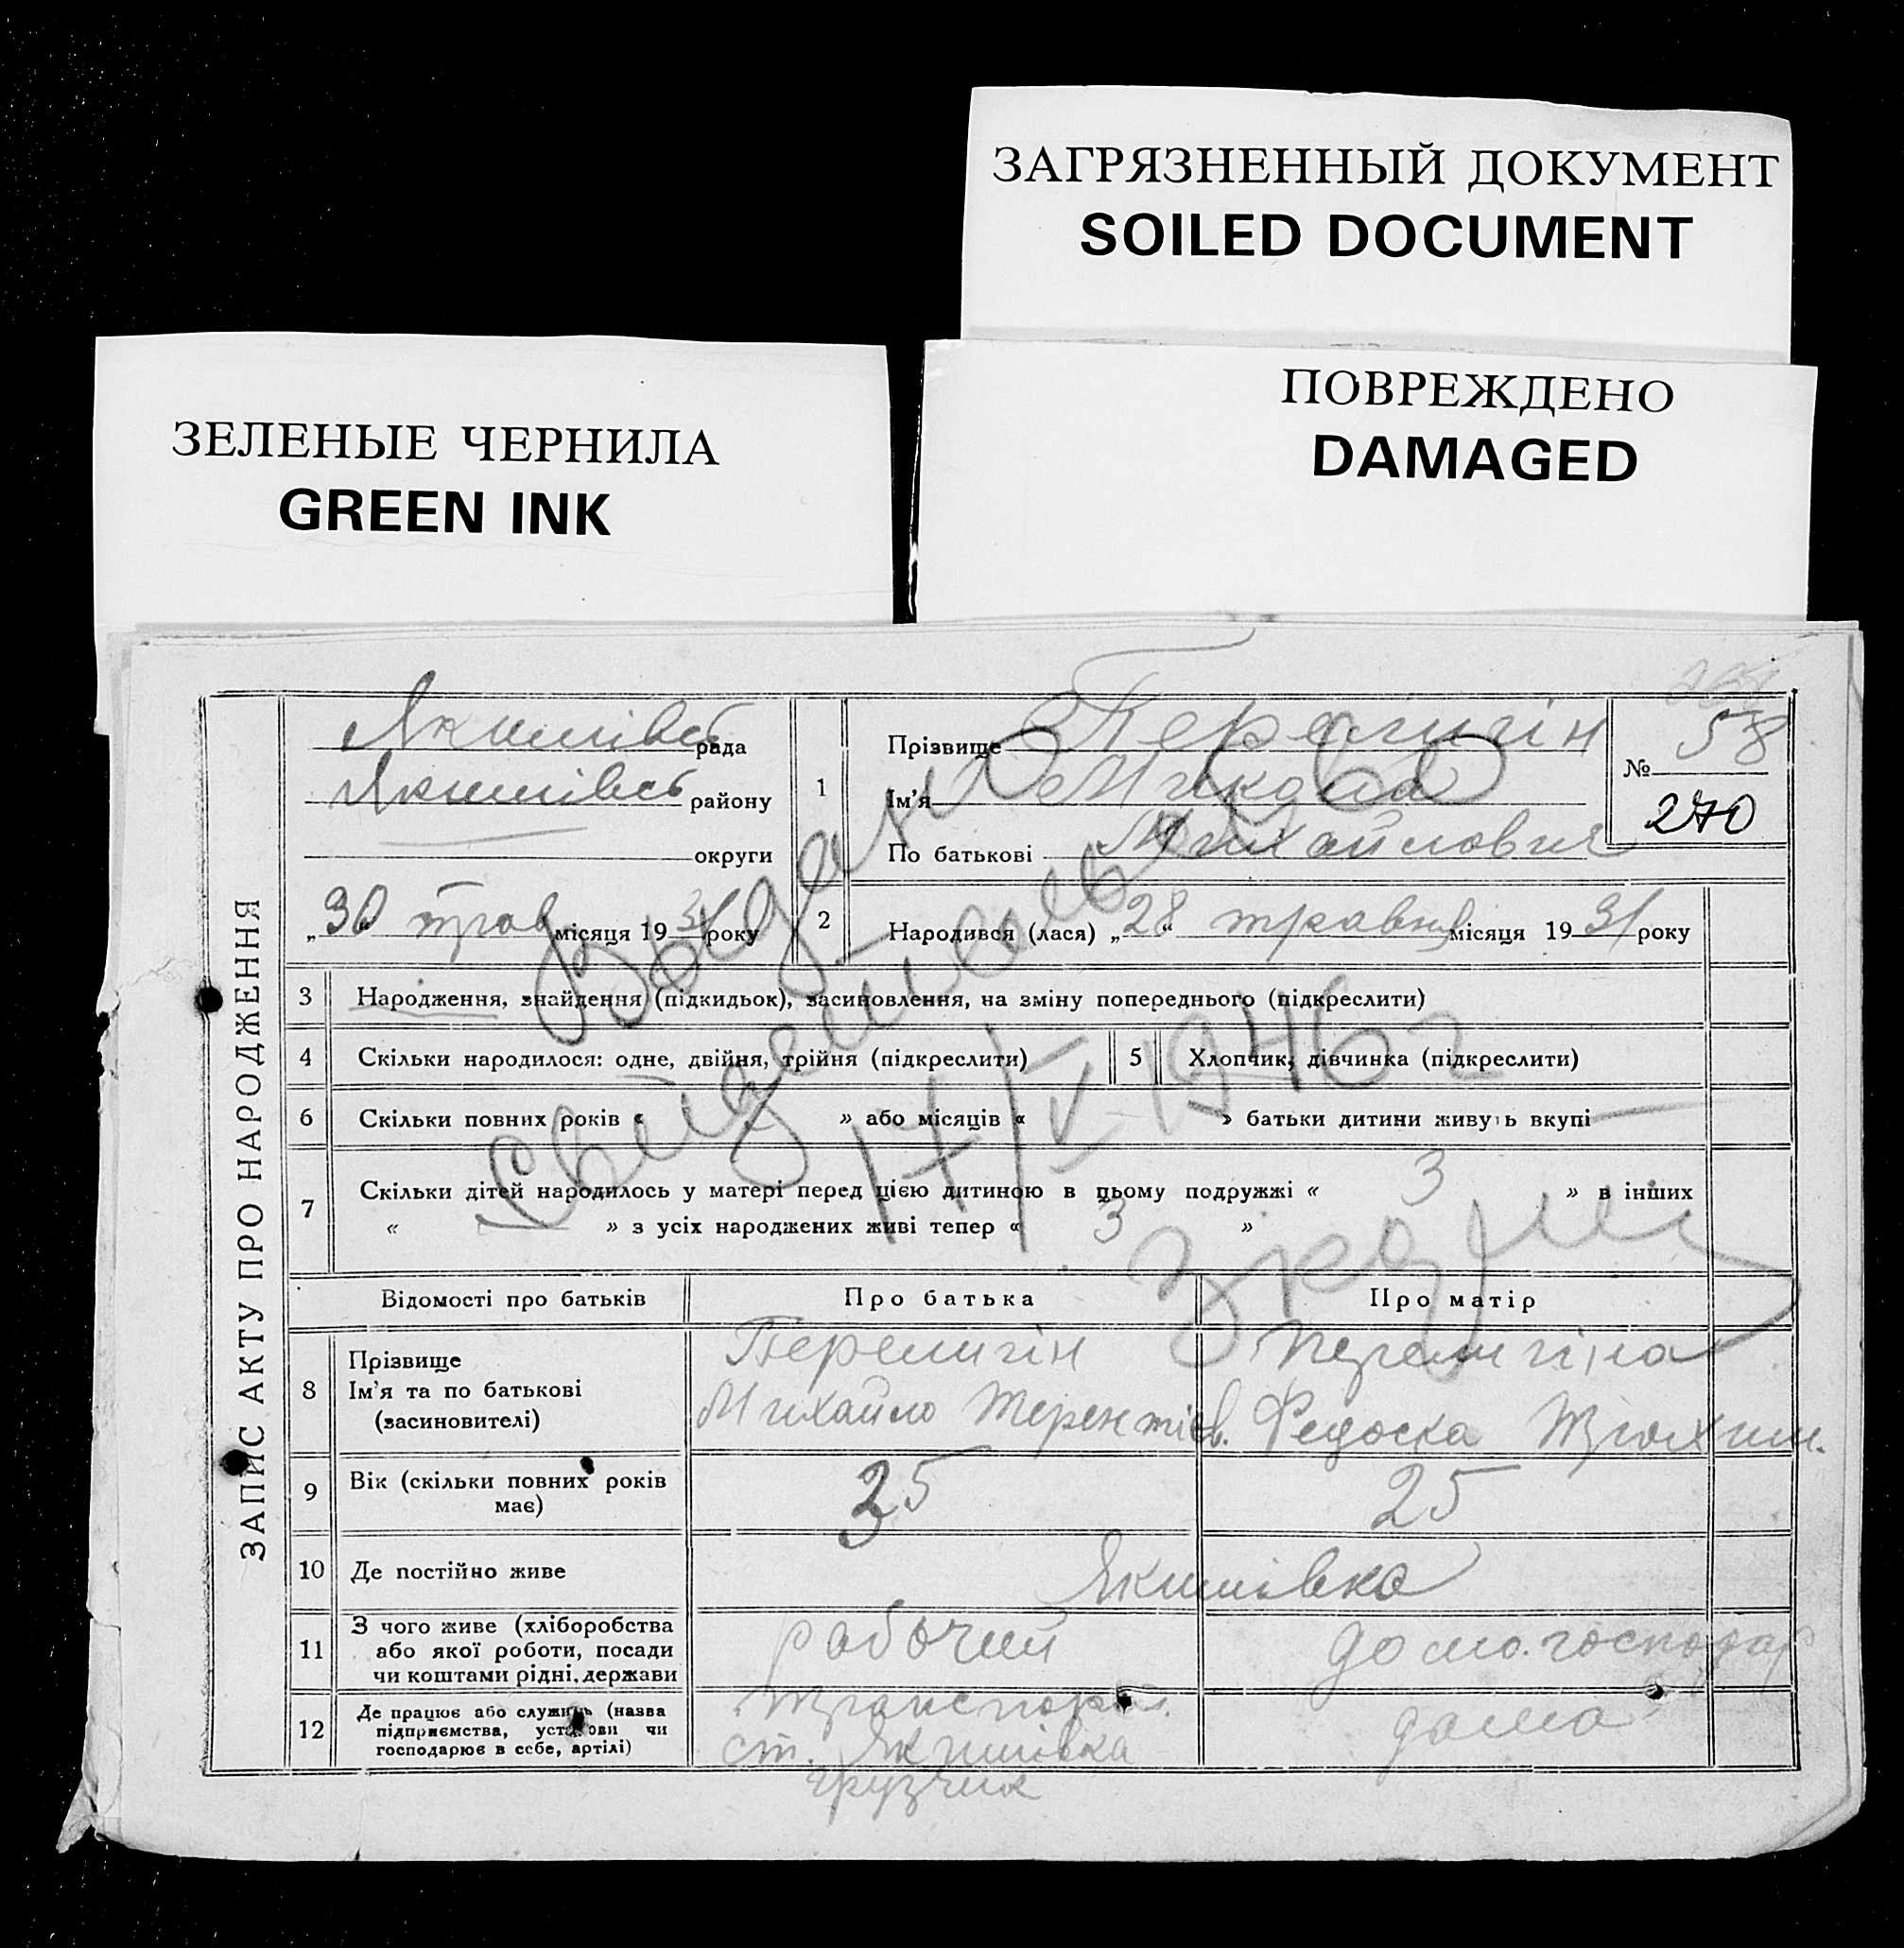 ЗАГРЯЗНЕННЫЙ ДОКУМЕНТ
SOILED DOCUMENT
ПОВРЕЖДЕНО
DAMAGED
ЗЕЛЕНЫЕ ЧЕРНИЛА
GREEN INK
ЗАПИС АКТУ ПРО НАРОДЖЕННЯ
Якимівсь рада
Якимівсь району
округи
„30 трав місяця 1931 року
1
Прізвище Перелигін
Ім'я Микола
По батькові Михайлович
№ 58
270
2
Народився (лася) „28“ травня місяця 1931 року
Выдано
свидетельство
17/V-1946 г
3 Народження, знайдення (підкидьок), засиновлення, на зміну попереднього (підкреслити)
4 Скільки народилося: одне, двійня, трійня (підкреслити) 5 Хлопчик, дівчинка (підкреслити)
6 Скільки повних років « » або місяців « » батьки дитини живуть вкупі —
7 Скільки дітей народилось у матері перед цією дитиною в цьому подружжі « 3 » в інших
« — » з усіх народжених живі тепер « 3 »
Відомості про батьків Про батька Про матір
8 Прізвище
Ім'я та по батькові
(засиновителі)
Перелигін
Михайло Терентієв.
Перелигіна
Федоска
9 Вік (скільки повних років
має)
35
25
10 Де постійно живе
Якимівка
11 З чого живе (хліборобства
або якої роботи, посади
чи коштами рідні, держави
рабочий
домо.господар
12 Де працює або служить (назва
підприємства, установи чи
господарює в себе, артілі)
транспорт.
ст. Якимівка
грузчик
дома